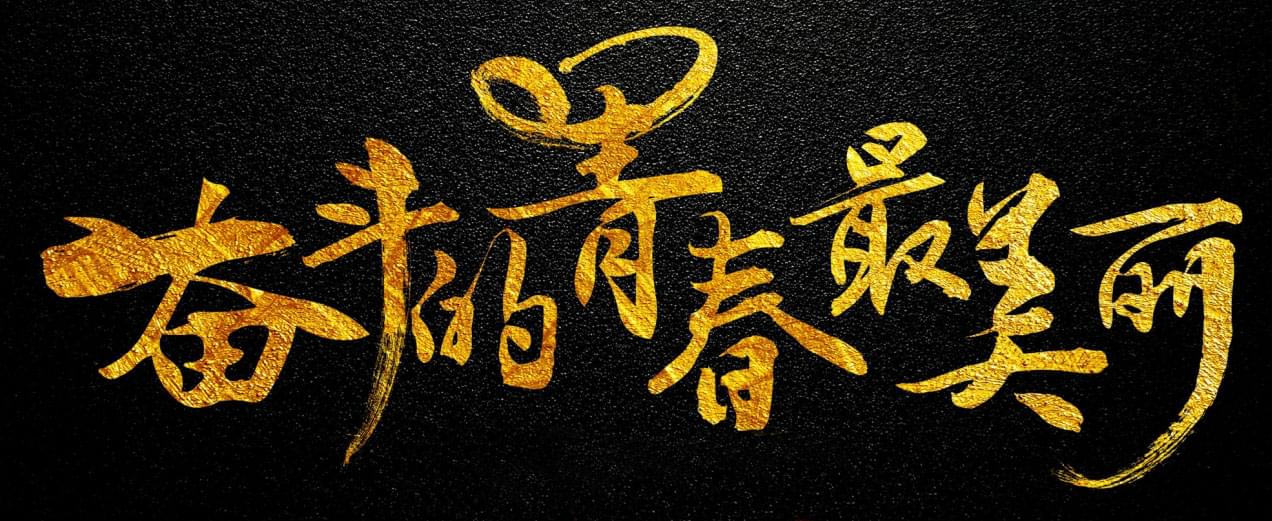 奋斗的青春最美丽